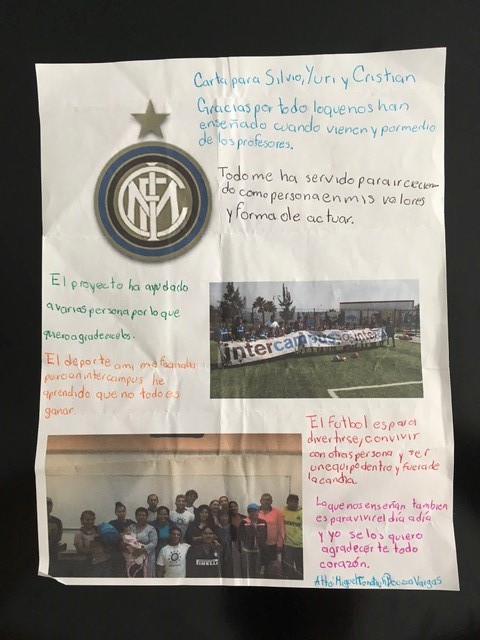 Carta para Silvio, Yuri y Cristian
Gracias por todo loquenos han
enseñado cuando vienen y pormedio
de los profesores.
Todo me ha servido para ir crecien
do como persona en mis valores
y forma de actuar.
El proyecto ha ayudado
a varias persona por lo que
quiero agradecerlos.
El deporte a mi me
por con intercampus he
aprendido que no todo es
ganar.
intercampus
PIRELLI
El futbol es para
divertirse, convivir
con otras persona y ser
un equipo dentro y fuera de
la cancha.
Lo que nos enseñan tambien
es para vivir el día a día
y yo se los quiero
agradecer te todo
corazón.
Att: Miguel Vargas